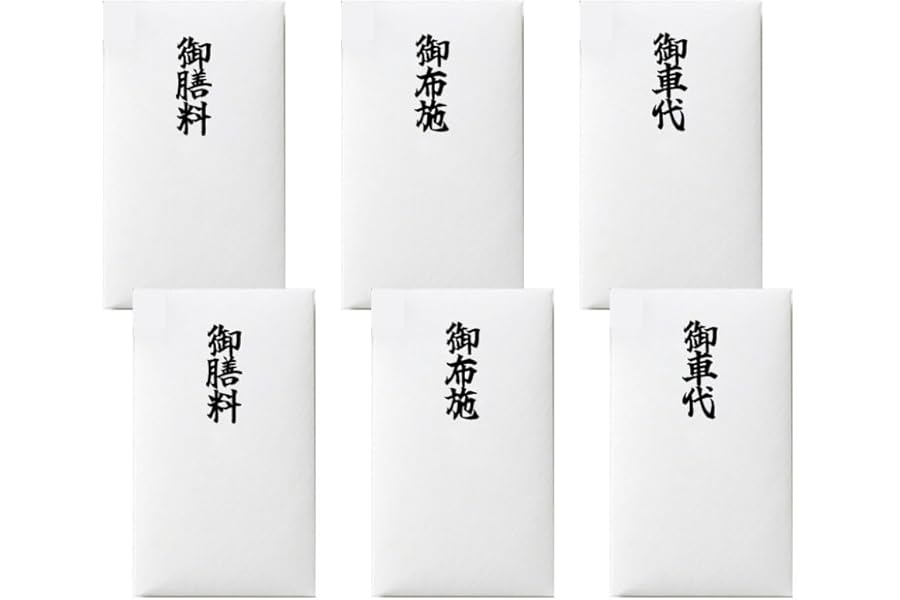 御膳料
御布施
御車代
御膳料
御布施
御車代